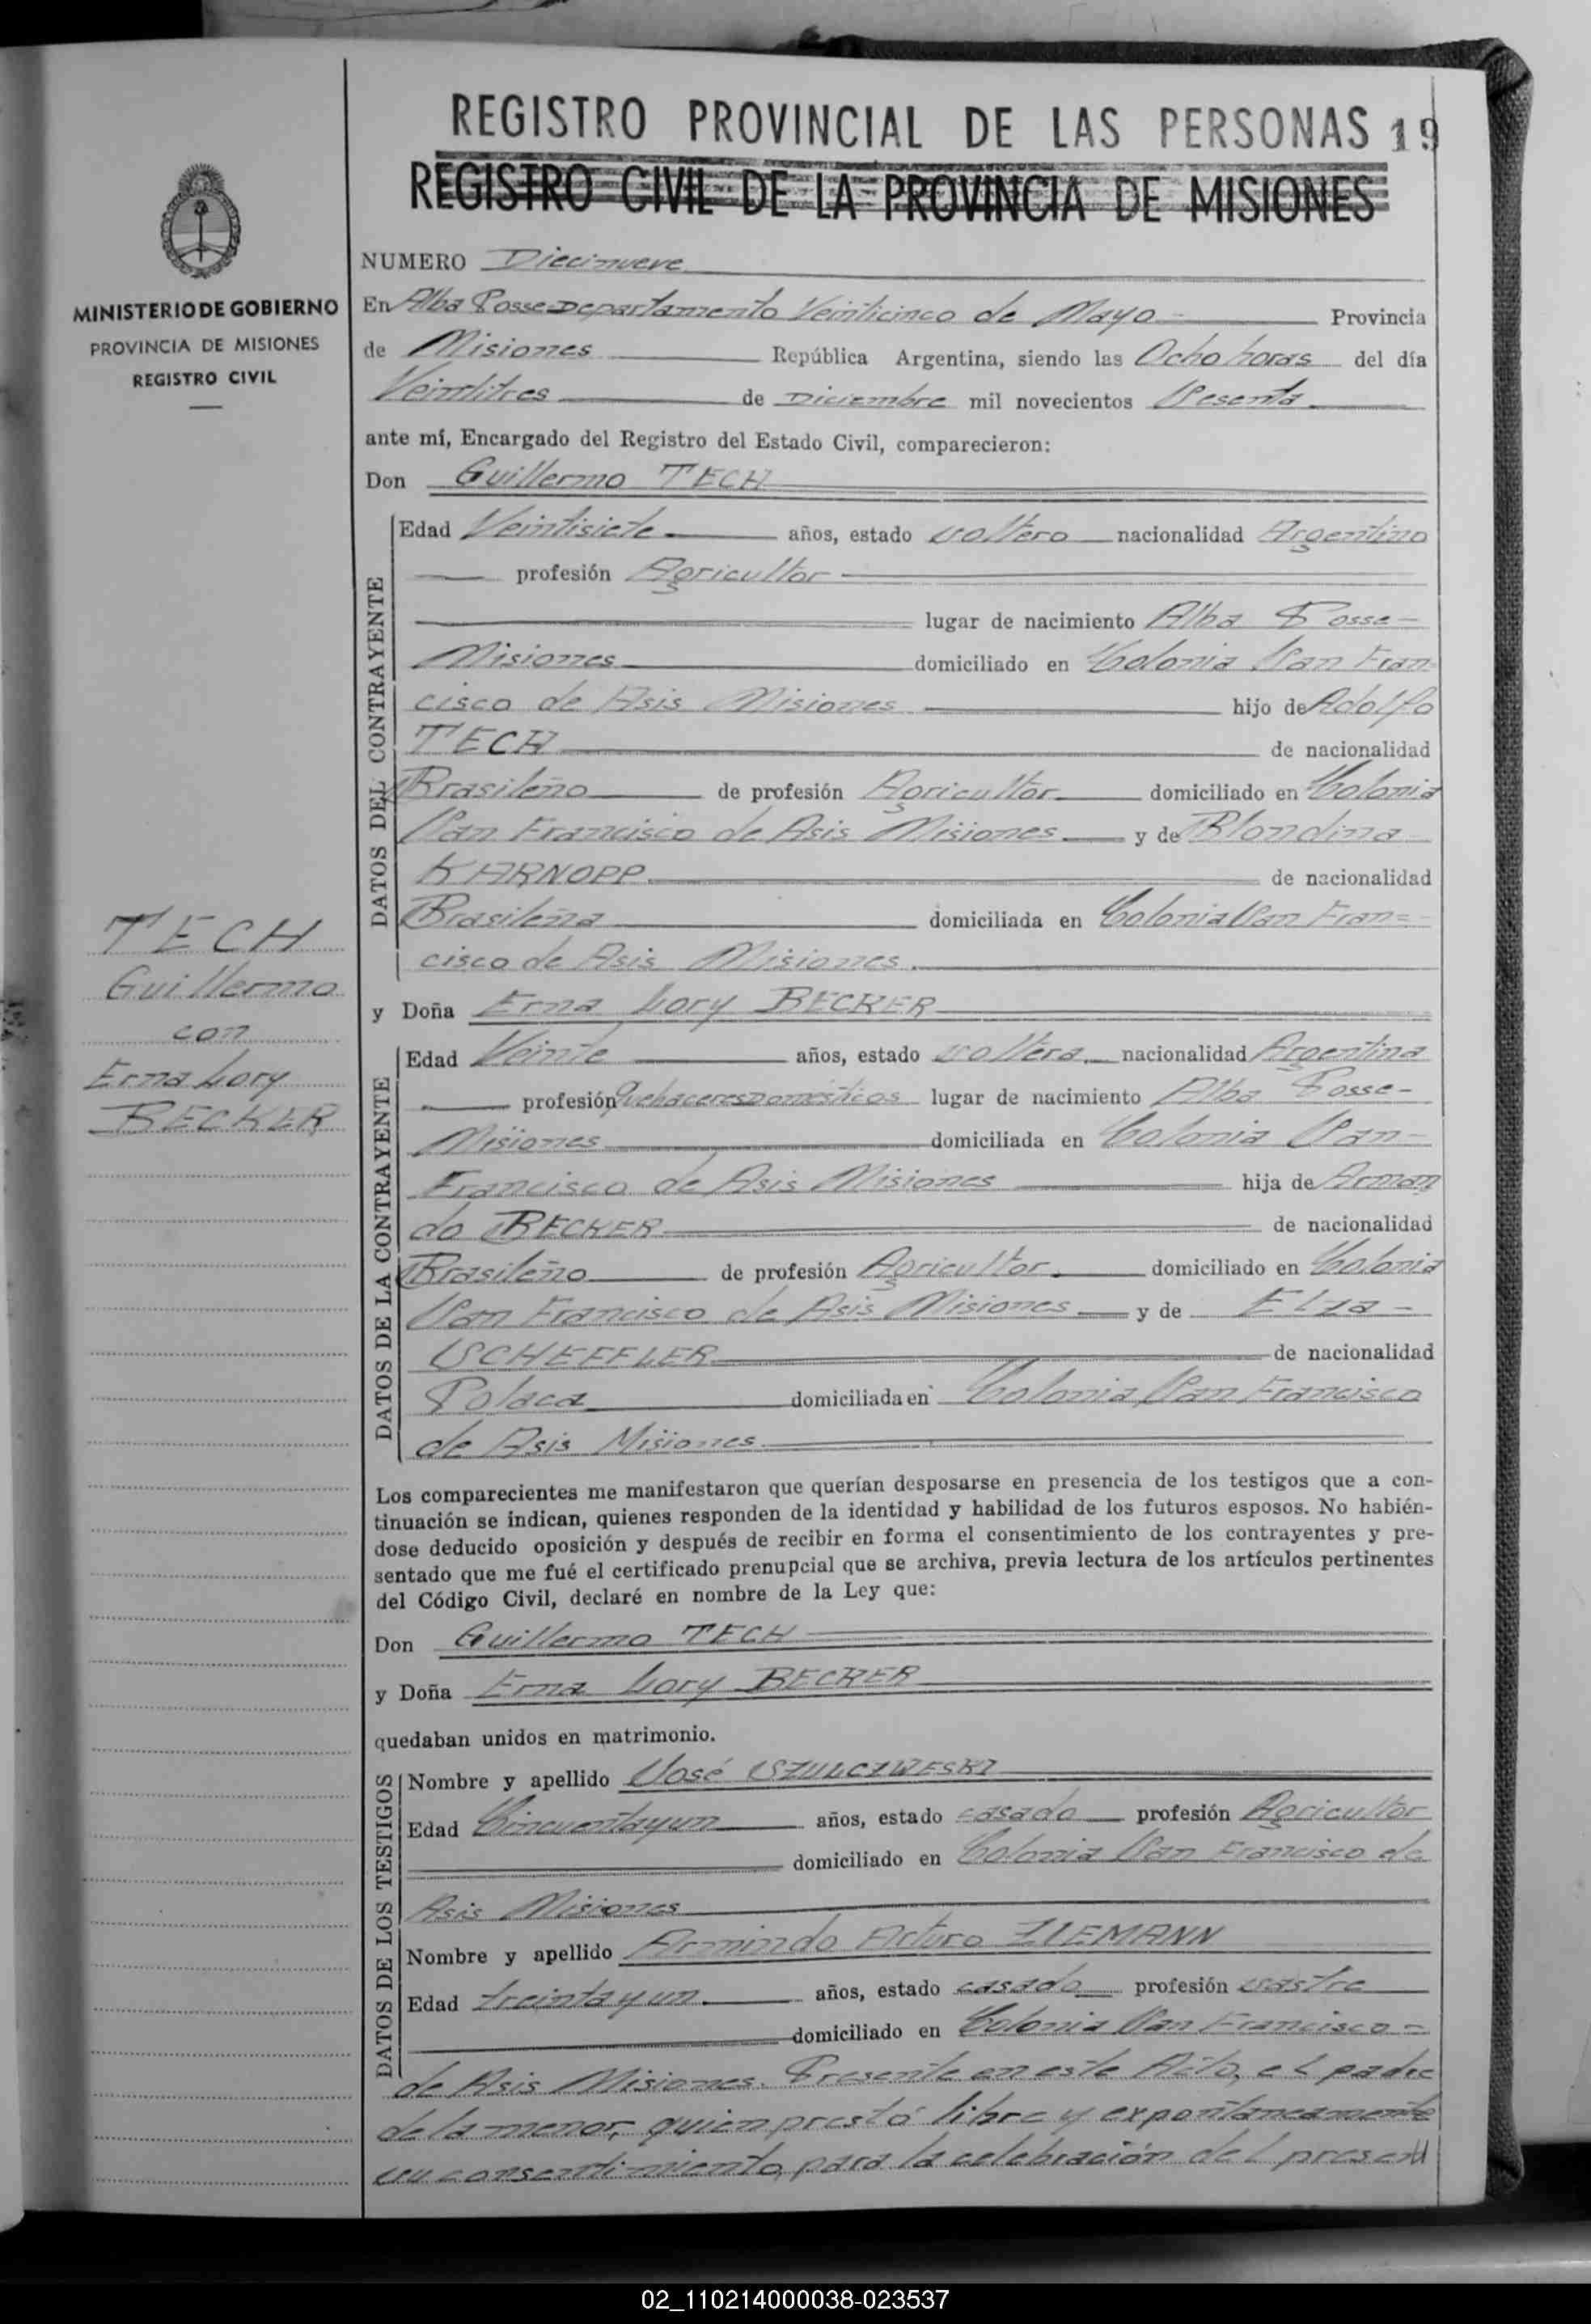 REGISTRO PROVINCIAL DE LAS PERSONAS 19
REGISTRO CIVIL DE LA PROVINCIA DE MISIONES
MINISTERIO DE GOBIERNO
PROVINCIA DE MISIONES
REGISTRO CIVIL
NUMERO Diecinueve
En Alba Posse Departamento Veinticinco de Mayo Provincia
de Misiones República Argentina, siendo las Ocho horas del día
Veintitres de Diciembre mil novecientos Sesenta
ante mí, Encargado del Registro del Estado Civil, comparecieron:
Don Guillermo TECH
DATOS DEL CONTRAYENTE
Edad Veintisiete años, estado soltero nacionalidad Argentino
profesión Agricultor
lugar de nacimiento Alba Posse-
Misiones domiciliado en Colonia San Fran-
cisco de Asis Misiones hijo de Adolfo
TECH de nacionalidad
Brasileño de profesión Agricultor domiciliado en Colonia
San Francisco de Asis Misiones y de Blondina
KARNOPP de nacionalidad
Brasileña domiciliada en Colonia San Fran=
cisco de Asis Misiones.
y Doña Erna Lory BECKER
DATOS DE LA CONTRAYENTE
Edad Veinte años, estado soltera nacionalidad Argentina
profesión Quehaceres Domésticos lugar de nacimiento Alba Posse-
Misiones domiciliada en Colonia San-
Francisco de Asis Misiones hija de Arman
do BECKER de nacionalidad
Brasileño de profesión Agricultor. domiciliado en Colonia
San Francisco de Asis Misiones y de Elza-
SCHEFFLER de nacionalidad
Polaca domiciliada en Colonia San Francisco
de Asis Misiones
TECH
Guillermo
con
Erna Lory
BECKER
Los comparecientes me manifestaron que querían desposarse en presencia de los testigos que a con-
tinuación se indican, quienes responden de la identidad y habilidad de los futuros esposos. No habién-
dose deducido oposición y después de recibir en forma el consentimiento de los contrayentes y pre-
sentado que me fué el certificado prenupcial que se archiva, previa lectura de los artículos pertinentes
del Código Civil, declaré en nombre de la Ley que:
Don Guillermo TECH
y Doña Erna Lory BECKER
quedaban unidos en matrimonio.
DATOS DE LOS TESTIGOS
Nombre y apellido José SZULCZWESKI
Edad Cincuentayun años, estado casado profesión Agricultor
domiciliado en Colonia San Francisco de
Asis Misiones
Nombre y apellido Armindo Arturo ZIEMANN
Edad treintayun años, estado casado profesión sastre
domiciliado en Colonia San Francisco-
de Asis Misiones. Presente en este Acto, el padre
de la menor, quien prestó libre y expontaneamente
su consentimiento, para la celebración del present
02_110214000038-023537